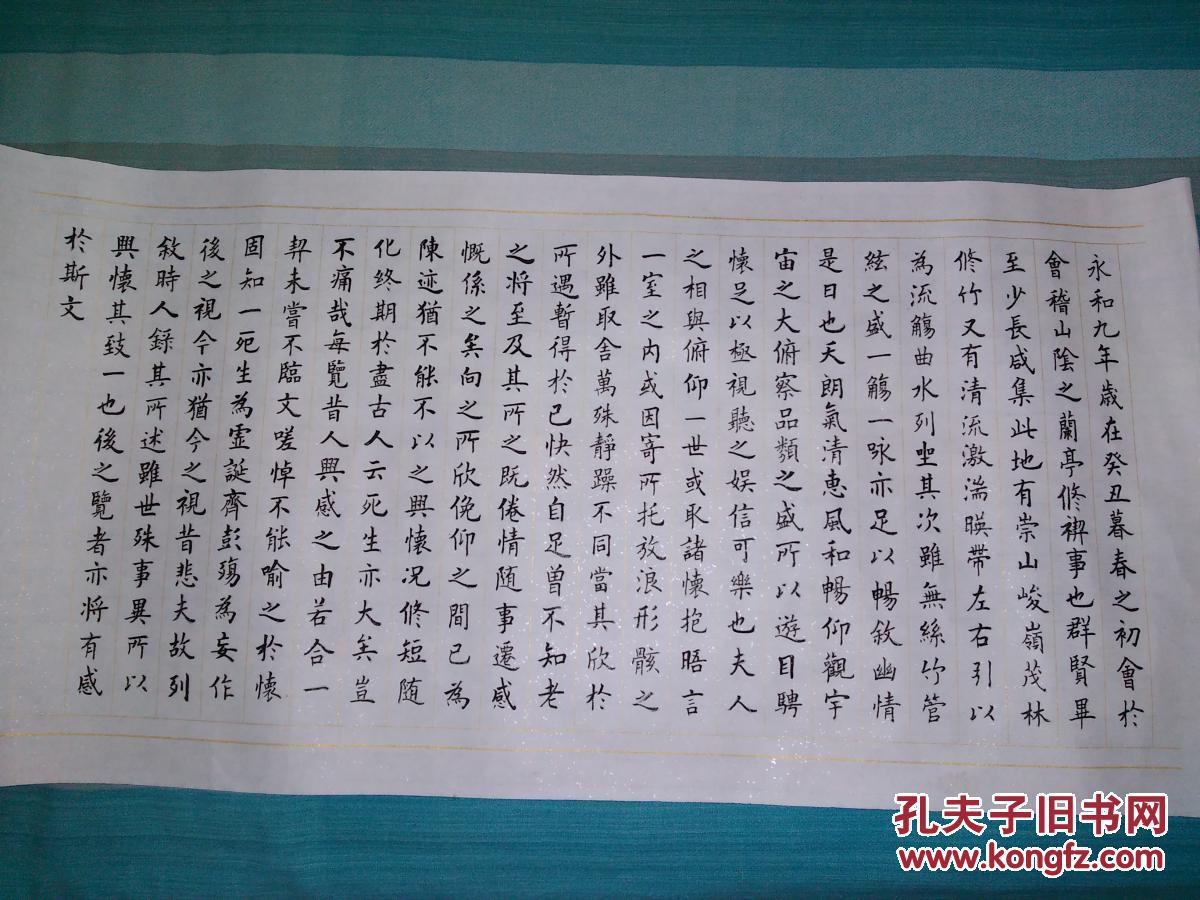 永和九年歲在癸丑暮春之初會於
會稽山陰之蘭亭修禊事也群賢畢
至少長咸集此地有崇山峻嶺茂林
修竹又有清流激湍暎帶左右引以
為流觴曲水列坐其次雖無絲竹管
絃之盛一觴一咏亦足以暢敘幽情
是日也天朗氣清惠風和暢仰觀宇
宙之大俯察品類之盛所以遊目騁
懷足以極視聽之娛信可樂也夫人
之相與俯仰一世或取諸懷抱晤言
一室之內或因寄所托放浪形骸之
外雖取舍萬殊靜躁不同當其欣於
所遇暫得於己快然自足曾不知老
之將至及其所之既倦情随事遷感
慨係之矣向之所欣俛仰之間已為
陳迹猶不能不以之興懷况修短随
化終期於盡古人云死生亦大矣豈
不痛哉每覽昔人興感之由若合一
契未嘗不臨文嗟悼不能喻之於懷
固知一死生為虛誕齊彭殤為妄作
後之視今亦猶今之視昔悲夫故列
敘時人錄其所述雖世殊事異所以
興懷其致一也後之覽者亦将有感
於斯文
孔夫子旧书网
www.kongfz.com